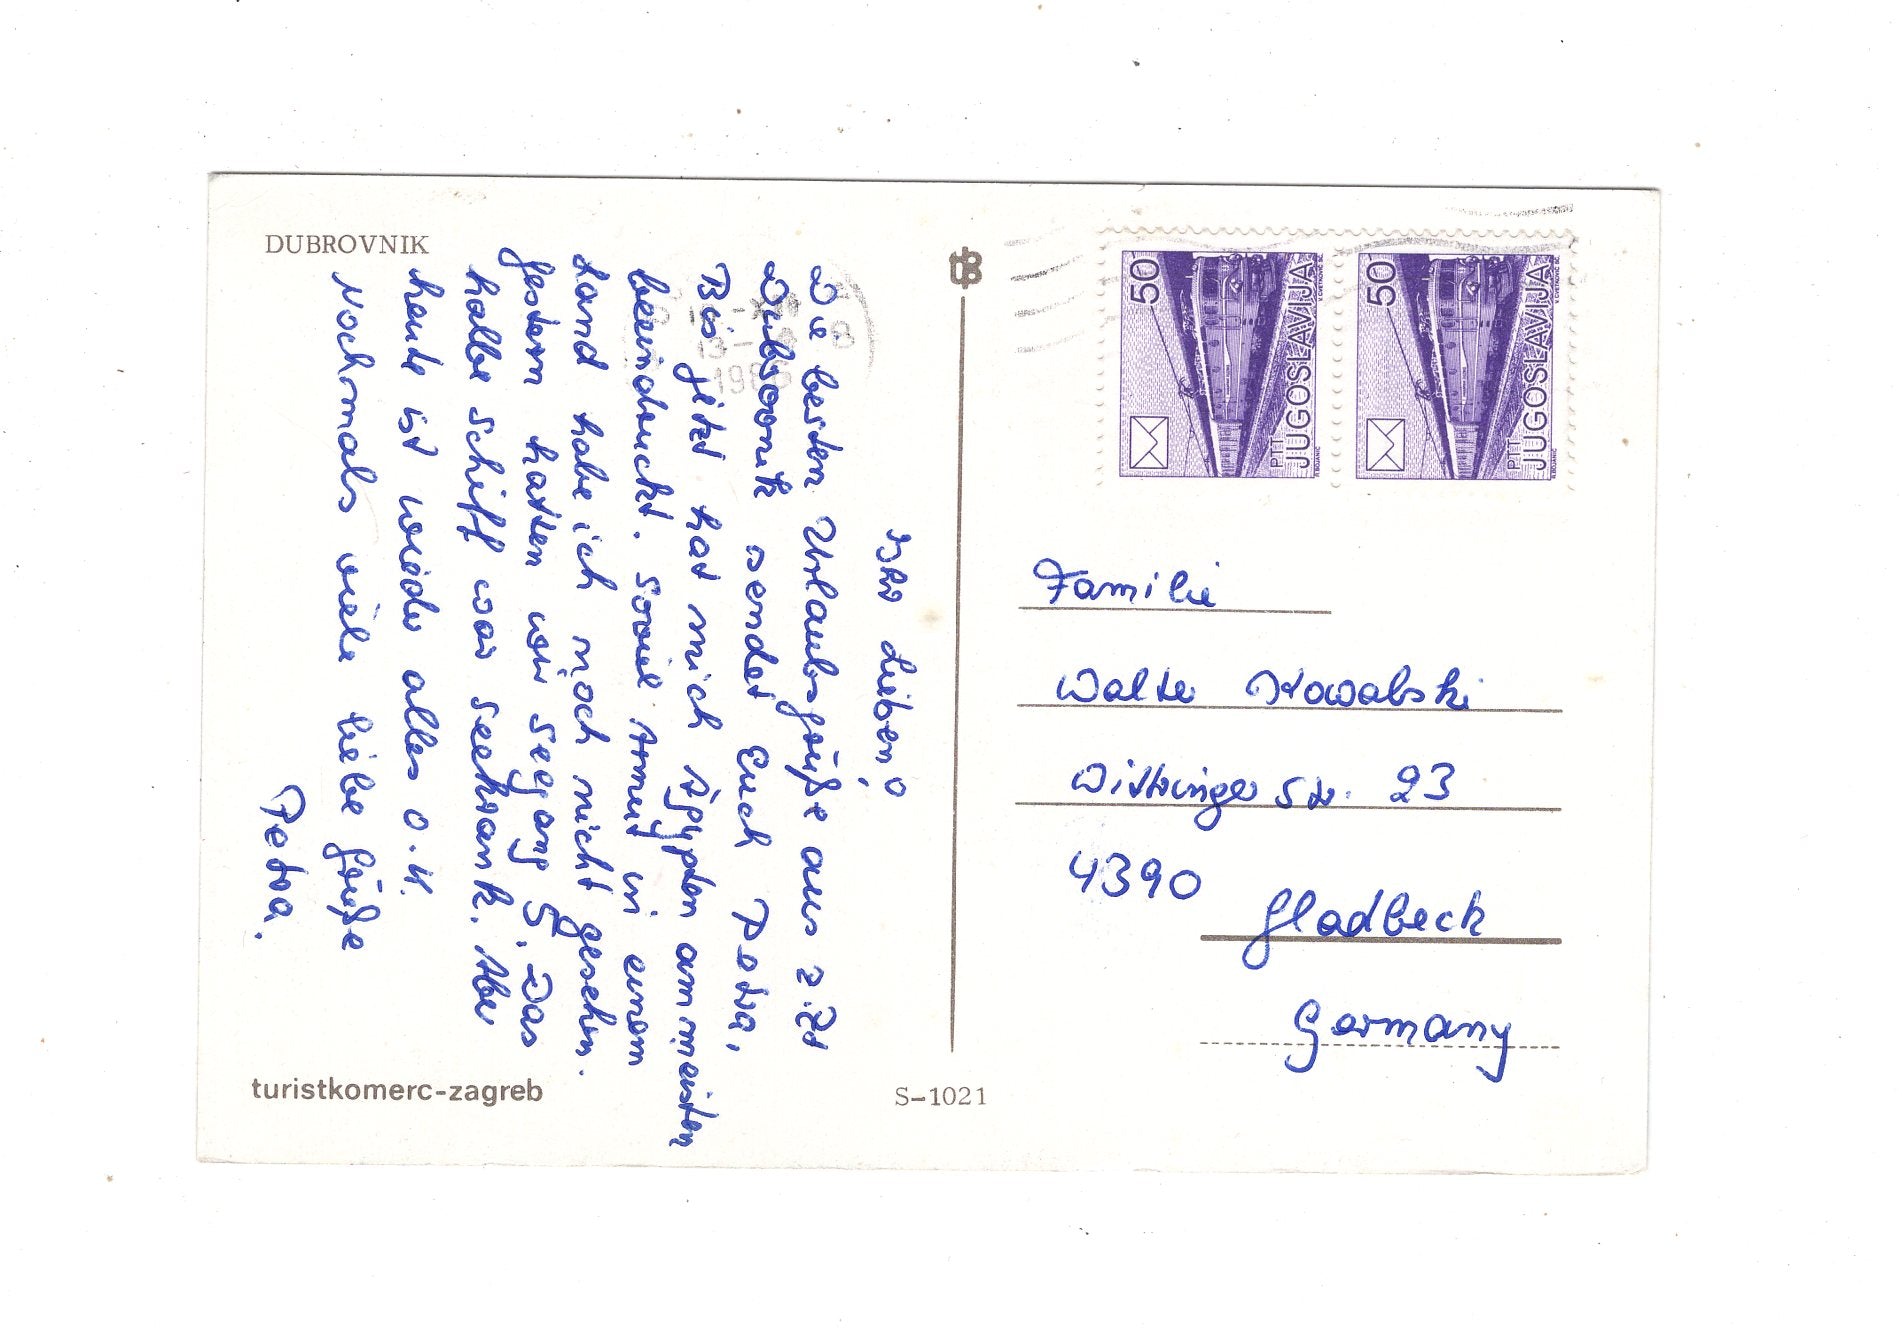 DUBROVNIK
Ihr Lieben!
Die besten Urlaubsgrüße aus z.Zt
Dubrovnik sendet Euch Petra,
Bis jetzt hat mich Ägypten am meisten
beeindruckt. Soviel Armut in einem
Land habe ich noch nicht gesehen.
Gestern hatten wir Seegang 5. Das
halbe Schiff war seekrank. Aber
heute ist wieder alles o.K.
Nochmals viele liebe Grüße
Petra.
turistkomerc-zagreb
S-1021
50
PTT
JUGOSLAVIJA
50
PTT
JUGOSLAVIJA
Familie
Walter Kowalski
Wittringer Str. 23
4390
Gladbeck
Germany